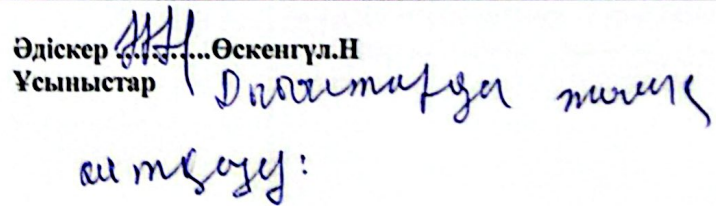 Әдіскер ............Өскенгүл.Н
Ұсыныстар Дыбыстарды толық
айтқызу: